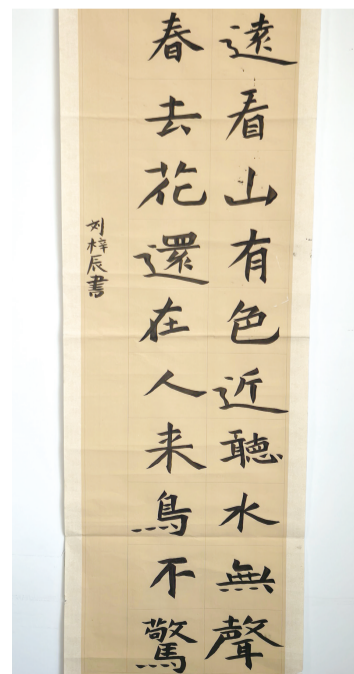 遠看山有色近聽水無聲
春去花還在人来鳥不驚
刘梓辰書